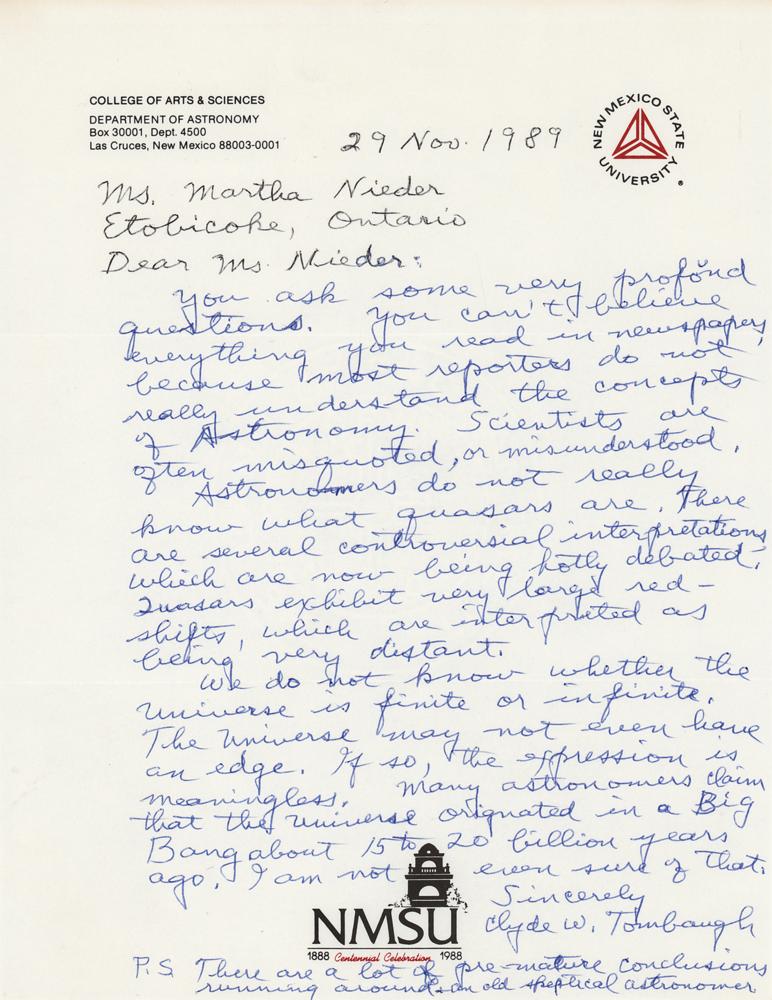 COLLEGE OF ARTS & SCIENCES
DEPARTMENT OF ASTRONOMY
Box 30001, Dept. 4500
Las Cruces, New Mexico 88003-0001
NEW MEXICO STATE UNIVERSITY
29 Nov. 1989
Ms. Martha Nieder
Etobicoke, Ontario
Dear Ms. Nieder:
You ask some very profond
questions. You can't believe
everything you read in newspapers,
because most reporters do not
really understand the concepts
of Astronomy. Scientists are
often misquoted, or misunderstood.
Astronomers do not really
know what quasars are. There
are several controversial interpretations
which are now being hotly debated.
Quasars exhibit very large red-
shifts, which are interpreted as
being very distant.
We do not know whether the
Universe is finite or infinite.
The Universe may not even have
an edge. If so, the expression is
meaningless. Many astronomers claim
that the universe orignated in a Big
Bang about 15 to 20 billion years
ago. I am not even sure of that.
Sincerely
Clyde W. Tombaugh
NMSU
1888 Centennial Celebration 1988
P.S. There are a lot of pre-mature conclusions
running around. an old skeptical astronomer